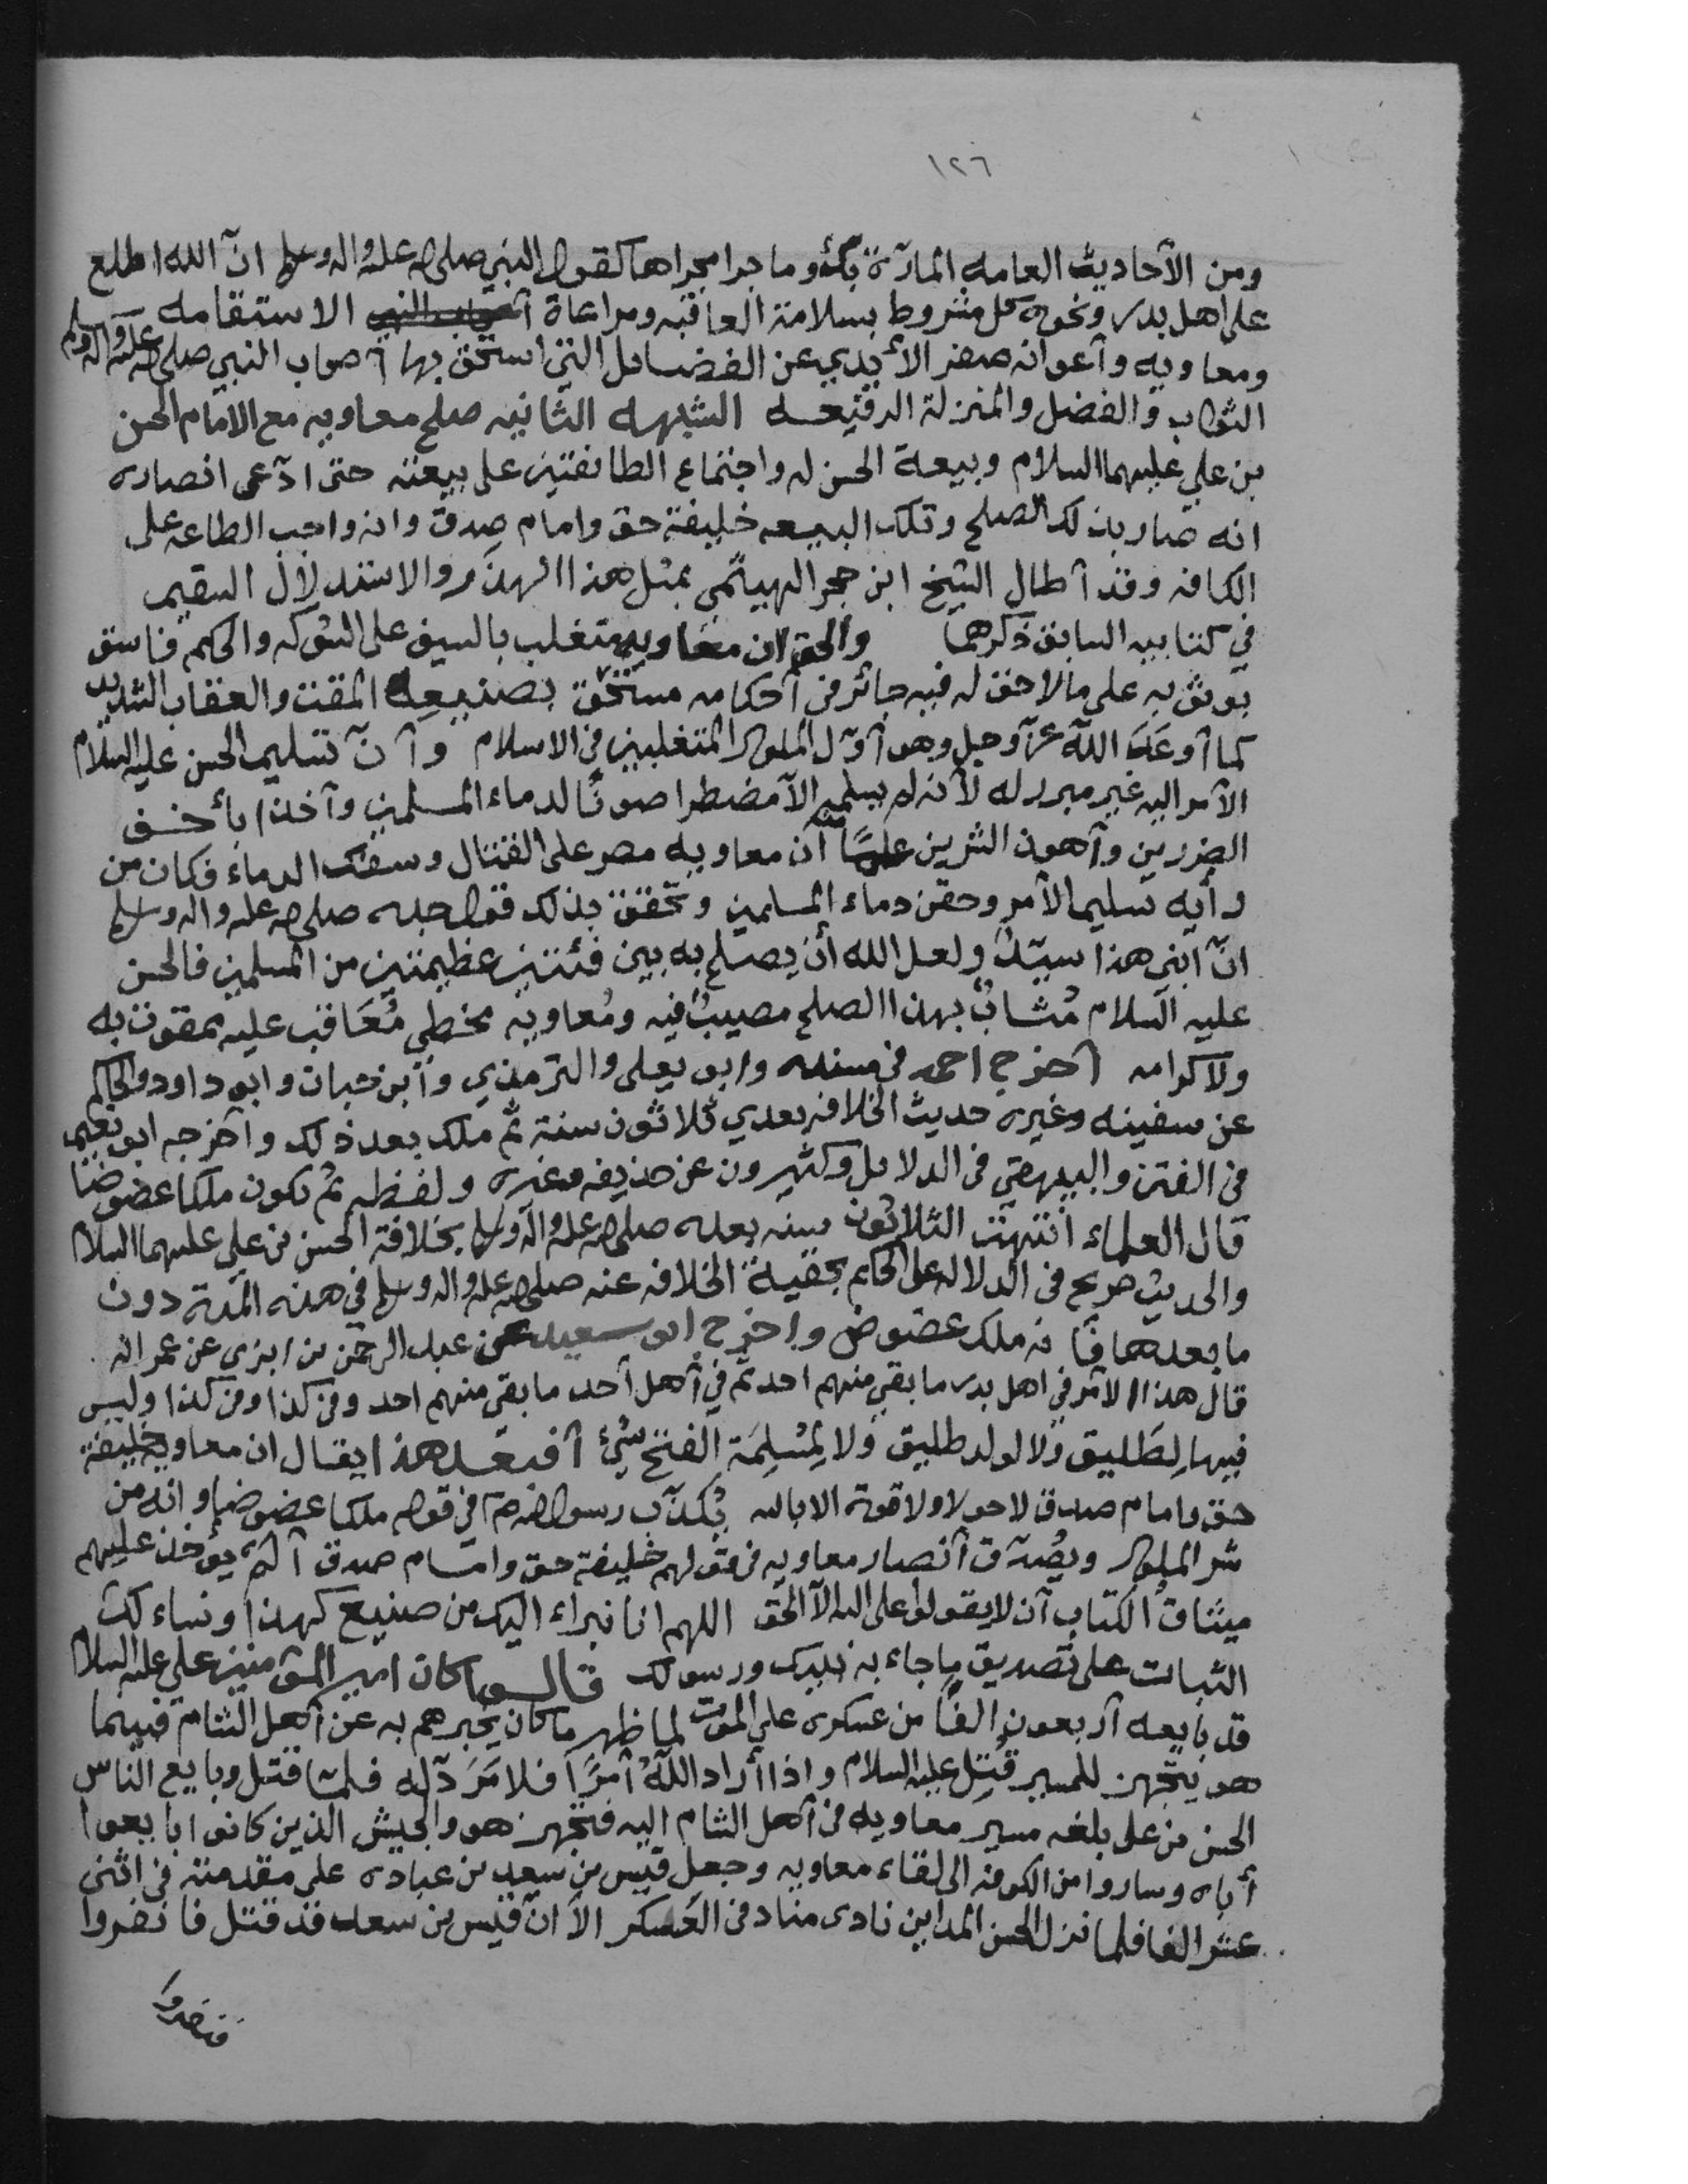 ١٢٦
ومن الآحاديث العامه المارّة بك وما جرا مجراها كقول النبي صلى الله عليه واله وسلم انّ الله اطلع
على اهل بدر ونحوه كل مشروط بسلامة العاقبه ومراعاة الاستقامه
ومعاويه وآعوانه صفر الأيدي عن الفضايل التي استحق بها آصحاب النبي صلى الله عليه واله وسلم
الثواب والفضل والمنزلة الرفيعه الشبهه الثانيه صلح معاويه مع الامام الحسن
بن علي عليهما السلام وبيعة الحسن له واجتماع الطائفتين على بيعته حتى ادّعى انصاره
انه صار بذلك الصلح وتلك البيعه خليفة حق وامام صِدق وانه واجب الطاعه على
الكافه وقد آطال الشيخ ابن حجر الهيتمي بمثل هذا الهذر والاستدلال السقيم
في كتابيه السابق ذكرهما والحق ان معاويه متغلب بالسيف على الشوكه والحكم فاسق
بوثوبه على مالاحق له فيه جائر في آحكامه مستحق بصنيعه المقت والعقاب الشديد
كما آوعَدَ الله عزّ وجل وهو آوّل الملوك المتغلبين في الاسلام وآنّ تسليم الحسن عليه السلام
الآمر اليه غير مبرر له لآنه لم يسلمه الآ مضطرا صونًا لدماء المسلمين وآخذا بأخف
الضررين وآهون الشرين آن معاويه مصر على القتال وسفك الدماء فكان من
رأيه تسليم الآمر وحقن دماء المسلمين وتحقق بذلك قول جده صلى الله عليه واله وسلم
انّ ابني هذا سيّدٌ ولعل الله أن يصلح به بين فئتين عظيمتين من المسلمين فالحسن
عليه السلام مُثابٌ بهذا الصلح مصيبٌ فيه ومُعاويه مخطي مُعَاقب عليه ممقوت به
ولاكرامه آخرج احمد في مسنده وابو يعلى والترمذي وآبن حبان وابو داود والحاكم
عن سفينه وغيره حديث الخلافه بعدي ثلاثون سنة ثم ملك بعد ذلك وآخرجه ابو نعيم
في الفتن والبيهقي في الدلايل وكثيرون عن حذيفه وغيره ولفظه ثم تكون ملكا عضوضا
قال العلماء انتهت الثلاثون سنه بعده صلى الله عليه وآله وسلم بخلافة الحسن بن علي عليهما السلام
والحديث صريح في الدلاله على الحكم بحقية الخلافه عنه صلى الله عليه واله وسلم في هذه المدة دون
ما بعدها فآنه ملك عضوض وآخرج ابو سعيد عن عبد الرحمن بن ابزى عن عمر انه
قال هذا الامر في اهل بدر ما بقي منهم احد ثم في آهل آحد ما بقي منهم احد وفي كذا وفي كذا وليس
فيها لِطَليق ولا لولد طليق ولا لمُسْلِمَة الفتح شيٌ آفبعد هذا يقال ان معاويه خليفة
حق وامام صدق لاحول ولا قوة الا بالله يُكذّب رسول الله ص في قوله ملكا عضوضا وانه من
شر الملوك ويُصدّق آنصار معاويه في قولهم خليفة حق وامام صدق آلم يوخذ عليهم
ميثاقُ الكتاب آن لا يقولوا على الله الآ الحق اللهم انا نبراء اليك من صنيع كهذا ونساءلك
الثبات على تصديق ما جاء به نبيك ورسولك قالوا كان امير المؤمنين علي عليه السلام
قد بايعه آربعون الفًا من عسكره على الموت لما ظهر ما كان يخبرهم به عن آهل الشام فبينما
هو يتجهز للمسير قُتِل عليه السلام واذا أراد اللهُ آمرًا فلا مَرَدّ له فلما قتل وبايع الناس
الحسن بن علي بلغه مسير معاويه في آهل الشام اليه فتجهز هو والجيش الذين كانوا بايعوا
أباه وساروا من الكوفه الى لقاء معاويه وجعل قيس بن سعد بن عباده على مقدمته في اثنى
عشر الفا فلما نزل الحسن المداين نادى مناد في العَسكر الآ انّ قيس بن سعد قد قتل فانفروا